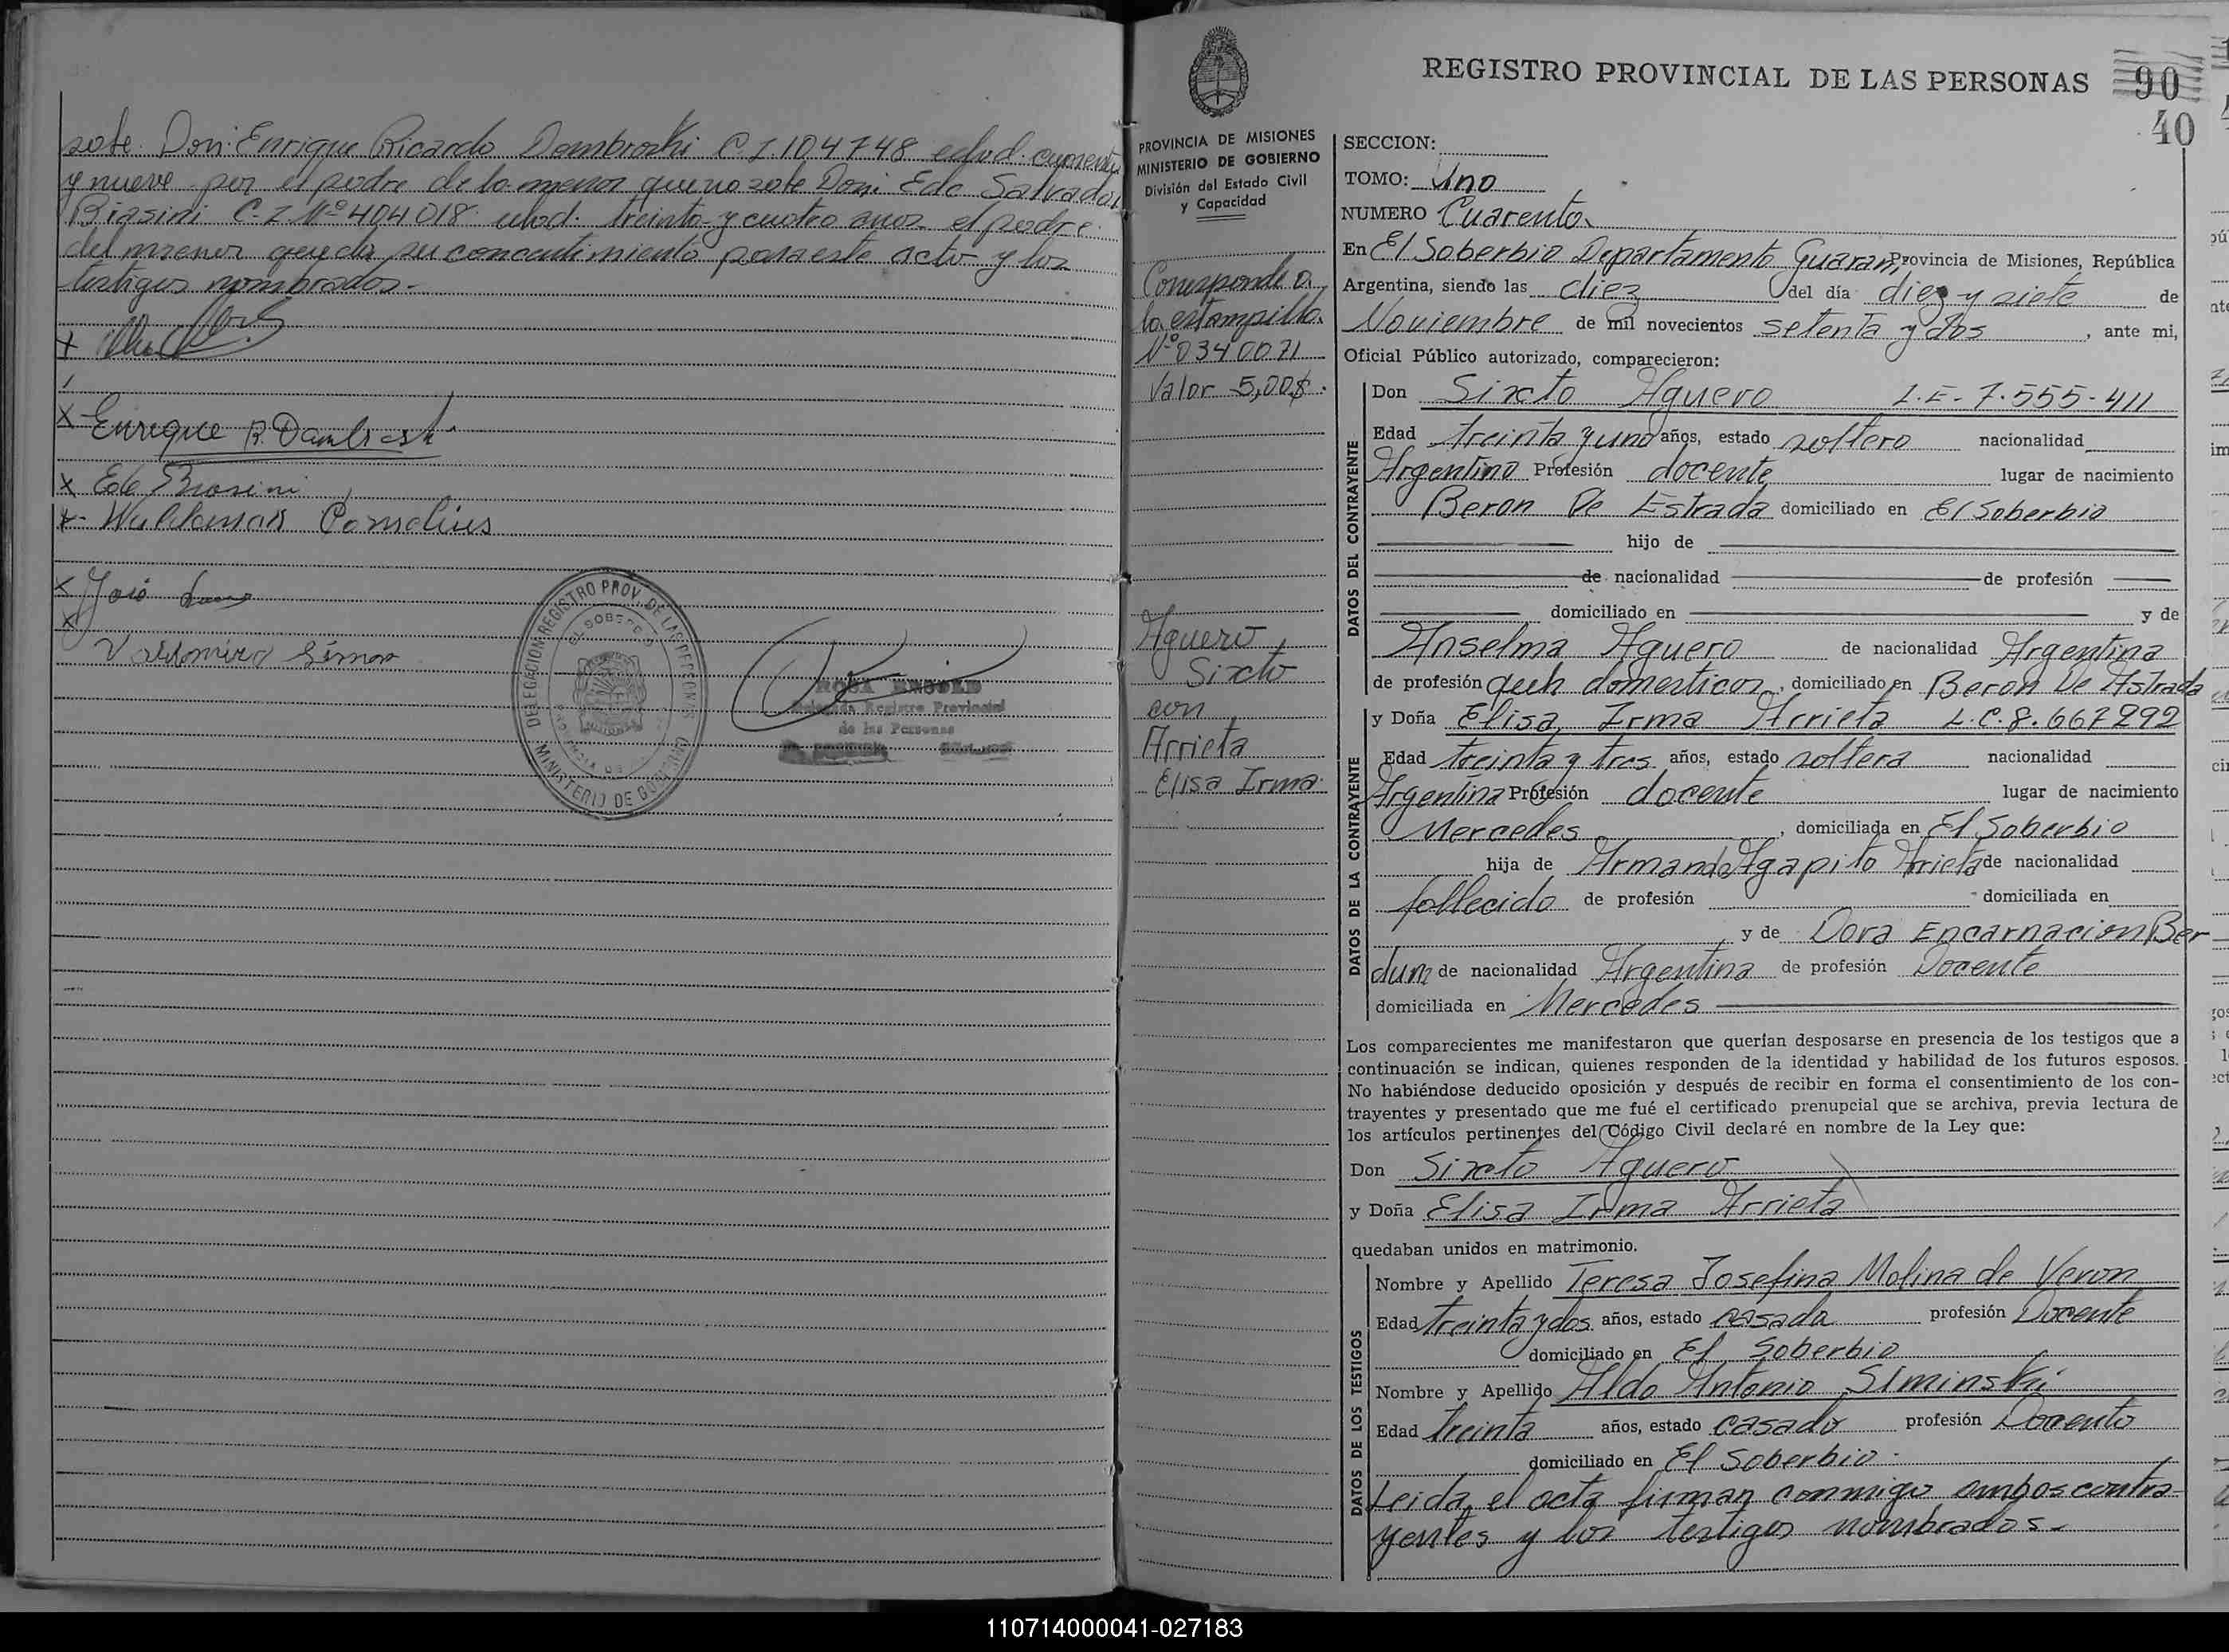 sote Don: Enrique Ricardo Dombroski C I 104748 edad: cuarenta
y nueve por el padre de la menor que no sabe Don: Edo Salvador
Biasini C.I Nº 404018 edad: treinta y cuatro anos el padre
del menor que da su concentimiento para este acto y los
testigos nombrados.-
Enrique R. Dambroski
Edo Biasini
José
Valdomiro Simon
DELEGACION REGISTRO PROV. DE LAS PERSONAS
EL SOBERBIO
MINISTERIO DE GOBIERNO
Delegada Registro Provincial
de las Personas
REGISTRO PROVINCIAL DE LAS PERSONAS
90
40
PROVINCIA DE MISIONES
MINISTERIO DE GOBIERNO
División del Estado Civil
y Capacidad
Corresponde a
la estampilla
Nº 0340071
Valor 5,00$.
Aguero
Sixto
con
Arrieta
Elisa Irma
SECCION:
TOMO: Uno
NUMERO Cuarenta
En El Soberbio Departamento Guarani Provincia de Misiones, República
Argentina, siendo las diez del día diez y siete de
Noviembre de mil novecientos setenta y dos, ante mi,
Oficial Público autorizado, comparecieron:
DATOS DEL CONTRAYENTE
Don Sixto Aguero L.E- 7.555-411
Edad treinta y uno años, estado soltero nacionalidad
Argentino Profesión docente lugar de nacimiento
Beron De Estrada domiciliado en El Soberbio
hijo de
de nacionalidad de profesión
domiciliado en y de
Anselma Aguero de nacionalidad Argentina
de profesión queh domesticos, domiciliado en Beron De Astrada
DATOS DE LA CONTRAYENTE
y Doña Elisa Irma Arrieta L.C.8.667292
Edad treinta y tres años, estado soltera nacionalidad
Argentina Profesión docente lugar de nacimiento
Mercedes, domiciliada en El Soberbio
hija de Armando Agapito Arrieta de nacionalidad
fallecido de profesión domiciliada en
y de Dora Encarnacion Ber
dum de nacionalidad Argentina de profesión Docente
domiciliada en Mercedes
Los comparecientes me manifestaron que querían desposarse en presencia de los testigos que a
continuación se indican, quienes responden de la identidad y habilidad de los futuros esposos.
No habiéndose deducido oposición y después de recibir en forma el consentimiento de los con-
trayentes y presentado que me fué el certificado prenupcial que se archiva, previa lectura de
los artículos pertinentes del Código Civil declaré en nombre de la Ley que:
Don Sixto Aguero
y Doña Elisa Irma Arrieta
quedaban unidos en matrimonio.
DATOS DE LOS TESTIGOS
Nombre y Apellido Teresa Josefina Molina de Veron
Edad treinta y dos años, estado casada profesión Docente
domiciliado en El Soberbio
Nombre y Apellido Aldo Antonio Siminski
Edad treinta años, estado casado profesión Docente
domiciliado en El Soberbio.
Leida el acta firman conmigo ambos contra-
yentes y los testigos nombrados.-
110714000041-027183